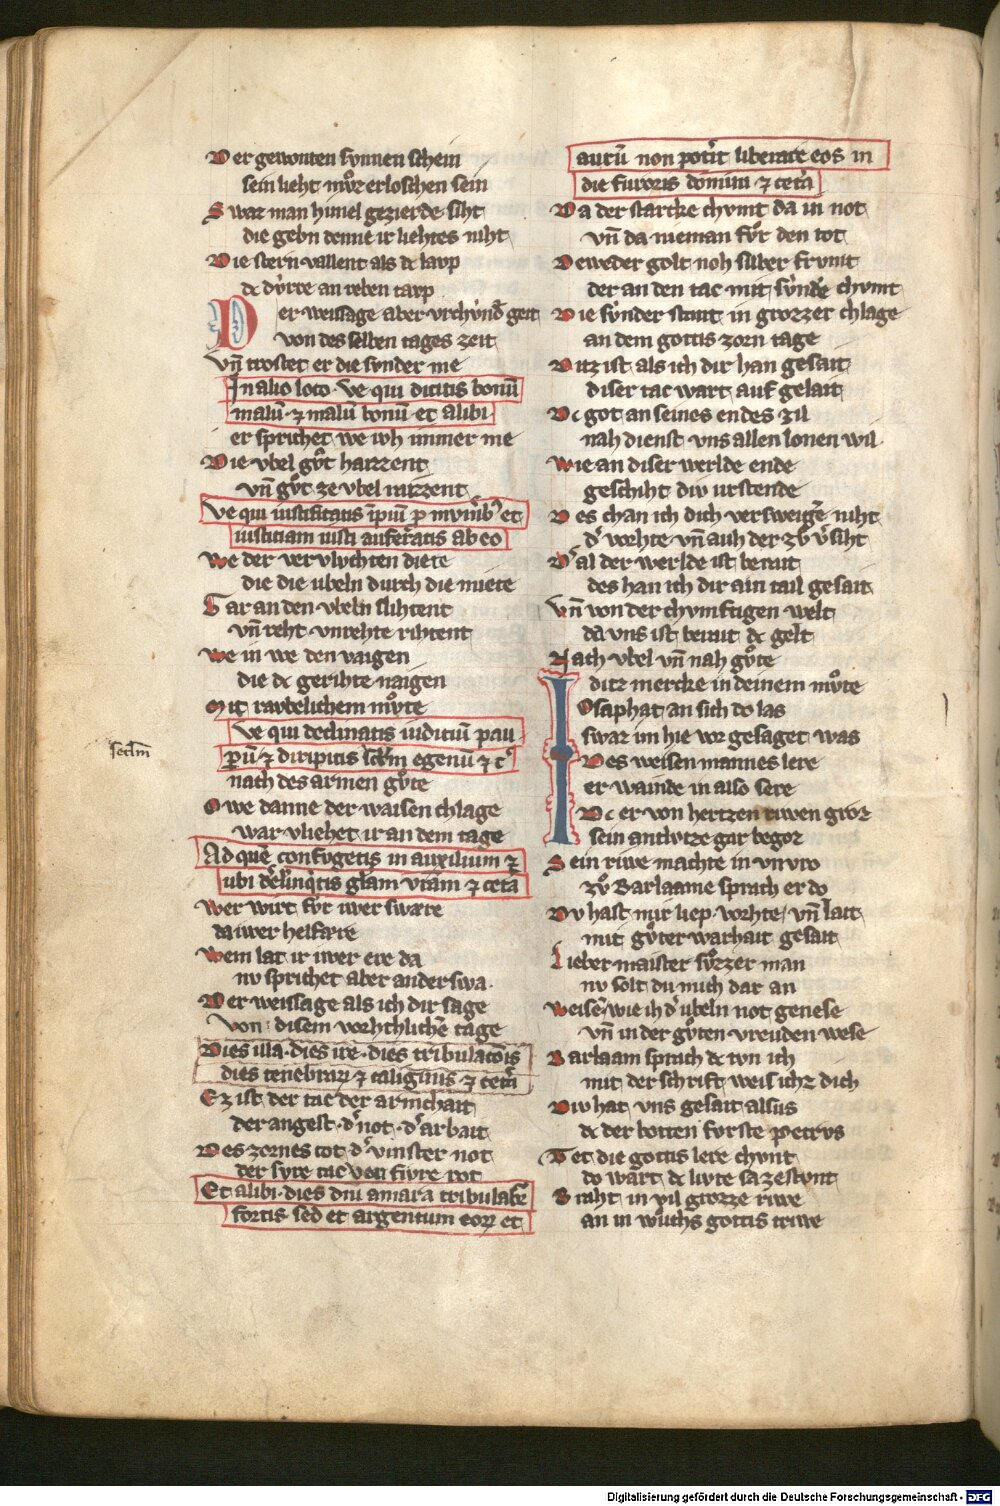 Der gewonten synnen schein
sein lieht mvͦz erloschen sein
Swaz man himel gezierde siht
die gebn denne ir liehtes niht
Die stern vallent als dc lavp
dc dvrre an reben tavp
Der weissage aber vrchvnd geit
von des selben tages zeit
vn̄ trostet er die synder me
In alio loco · Ve qui dicitis bonū
malū · ⁊ malū bonū · et alibi ·
er sprichet we iwh immer me
Die vbel gvͦt haizzent
vn̄ gvͦt ze vbel raizzent
Ve qui iustificatis īpiū p mvn̄ib᾽ et
iustitiam iusti aufertis ab eo
We der vervlvchten diete
die die ubeln durch die miete
Gar an den vbeln slihtent
vn̄ reht vnrehte rihtent
We in we den vaigen
die dc gerihte naigen
Mit ravbelichem mvͦte
Ve qui declinatis iudiciū pau
perū ⁊ diripitis egenū ⁊ c᾽
sectm̄
nach des armen gvͦte
Owe danne der waisen chlage
war vliehet ir an dem tage
Ad quē confvgetis in auxilium ⁊
ubi derelinq̄tis glam vram ⁊ cetā
Wer wirt fvr iwer swære
da iwer helfære
Wem lat ir iwer ere da
nv sprichet aber anderswa ·
Der weissage als ich dir sage
von disem vorhthlichē tage
Dies illa · dies ire · dies tribulacōis
dies tenebrarꝝ ⁊ caliginis ⁊ cetā
Ez ist der tac der armchait
der angest · d᾽ not · d᾽ arbait
Des zornes tot d᾽ vinster not
der svre tac von fivre rot
Et alibi · dies dni amara tribulabit᾽
fortis sed et argentum eorꝝ et
aurū non potit liberare eos in
die furoris domini ⁊ cetā
Da der starcke chvmt da in not
vn̄ da nieman fvͦr den tot
Deweder golt noh silber frvmt
der an den tac mit svndē chvmt
Die svnder stant in grozzer chlage
an dem gottis zorn tage
Ditz ist als ich dir han gesait
diser tac wart auf gelait
Dc got an seines endes zil
nah dienst vns allen lonen wil
Wie an diser werlde ende
geschiht div urstende
Des chan ich dich versweigē niht
d᾽ vorhte vn̄ auh der zvͦ v᾽siht
D᾽ al der werlde ist berait
des han ich dir ain tail gesait
Vn̄ von der chvmftigen welt
da vns ist berait dc gelt
Nach vbel vn̄ nah gvͦte
ditz mercke in deinem mvͦte
Iosaphat an sich do las
swaz im hie vor gesaget was
Des weisen mannes lere
er wainde in also sere
Dc er von hertzen riwen groz
sein antlvtze gar begoz
Sein riwe machte in vnvro
zvͦ Barlaame sprach er do
Dv hast mir liep · vorhte · vn̄ lait
mit gvͦter warhait gesait
Lieber maister svͦzzer man
nv solt du mich dar an
Weisē wie ih d᾽ ubeln not genese
vn̄ in der gvͦten vreuden wese
Barlaam sprach dc tvn ich
mit der schrift weis ichz dich
Div hat vns gesait alsus
dc der botten fvrste petrvs
Tet die gottis lere chvnt
do wart dc livte sa zestvnt
Braht in vil grozze riwe
an in wuͦhs gottis triwe